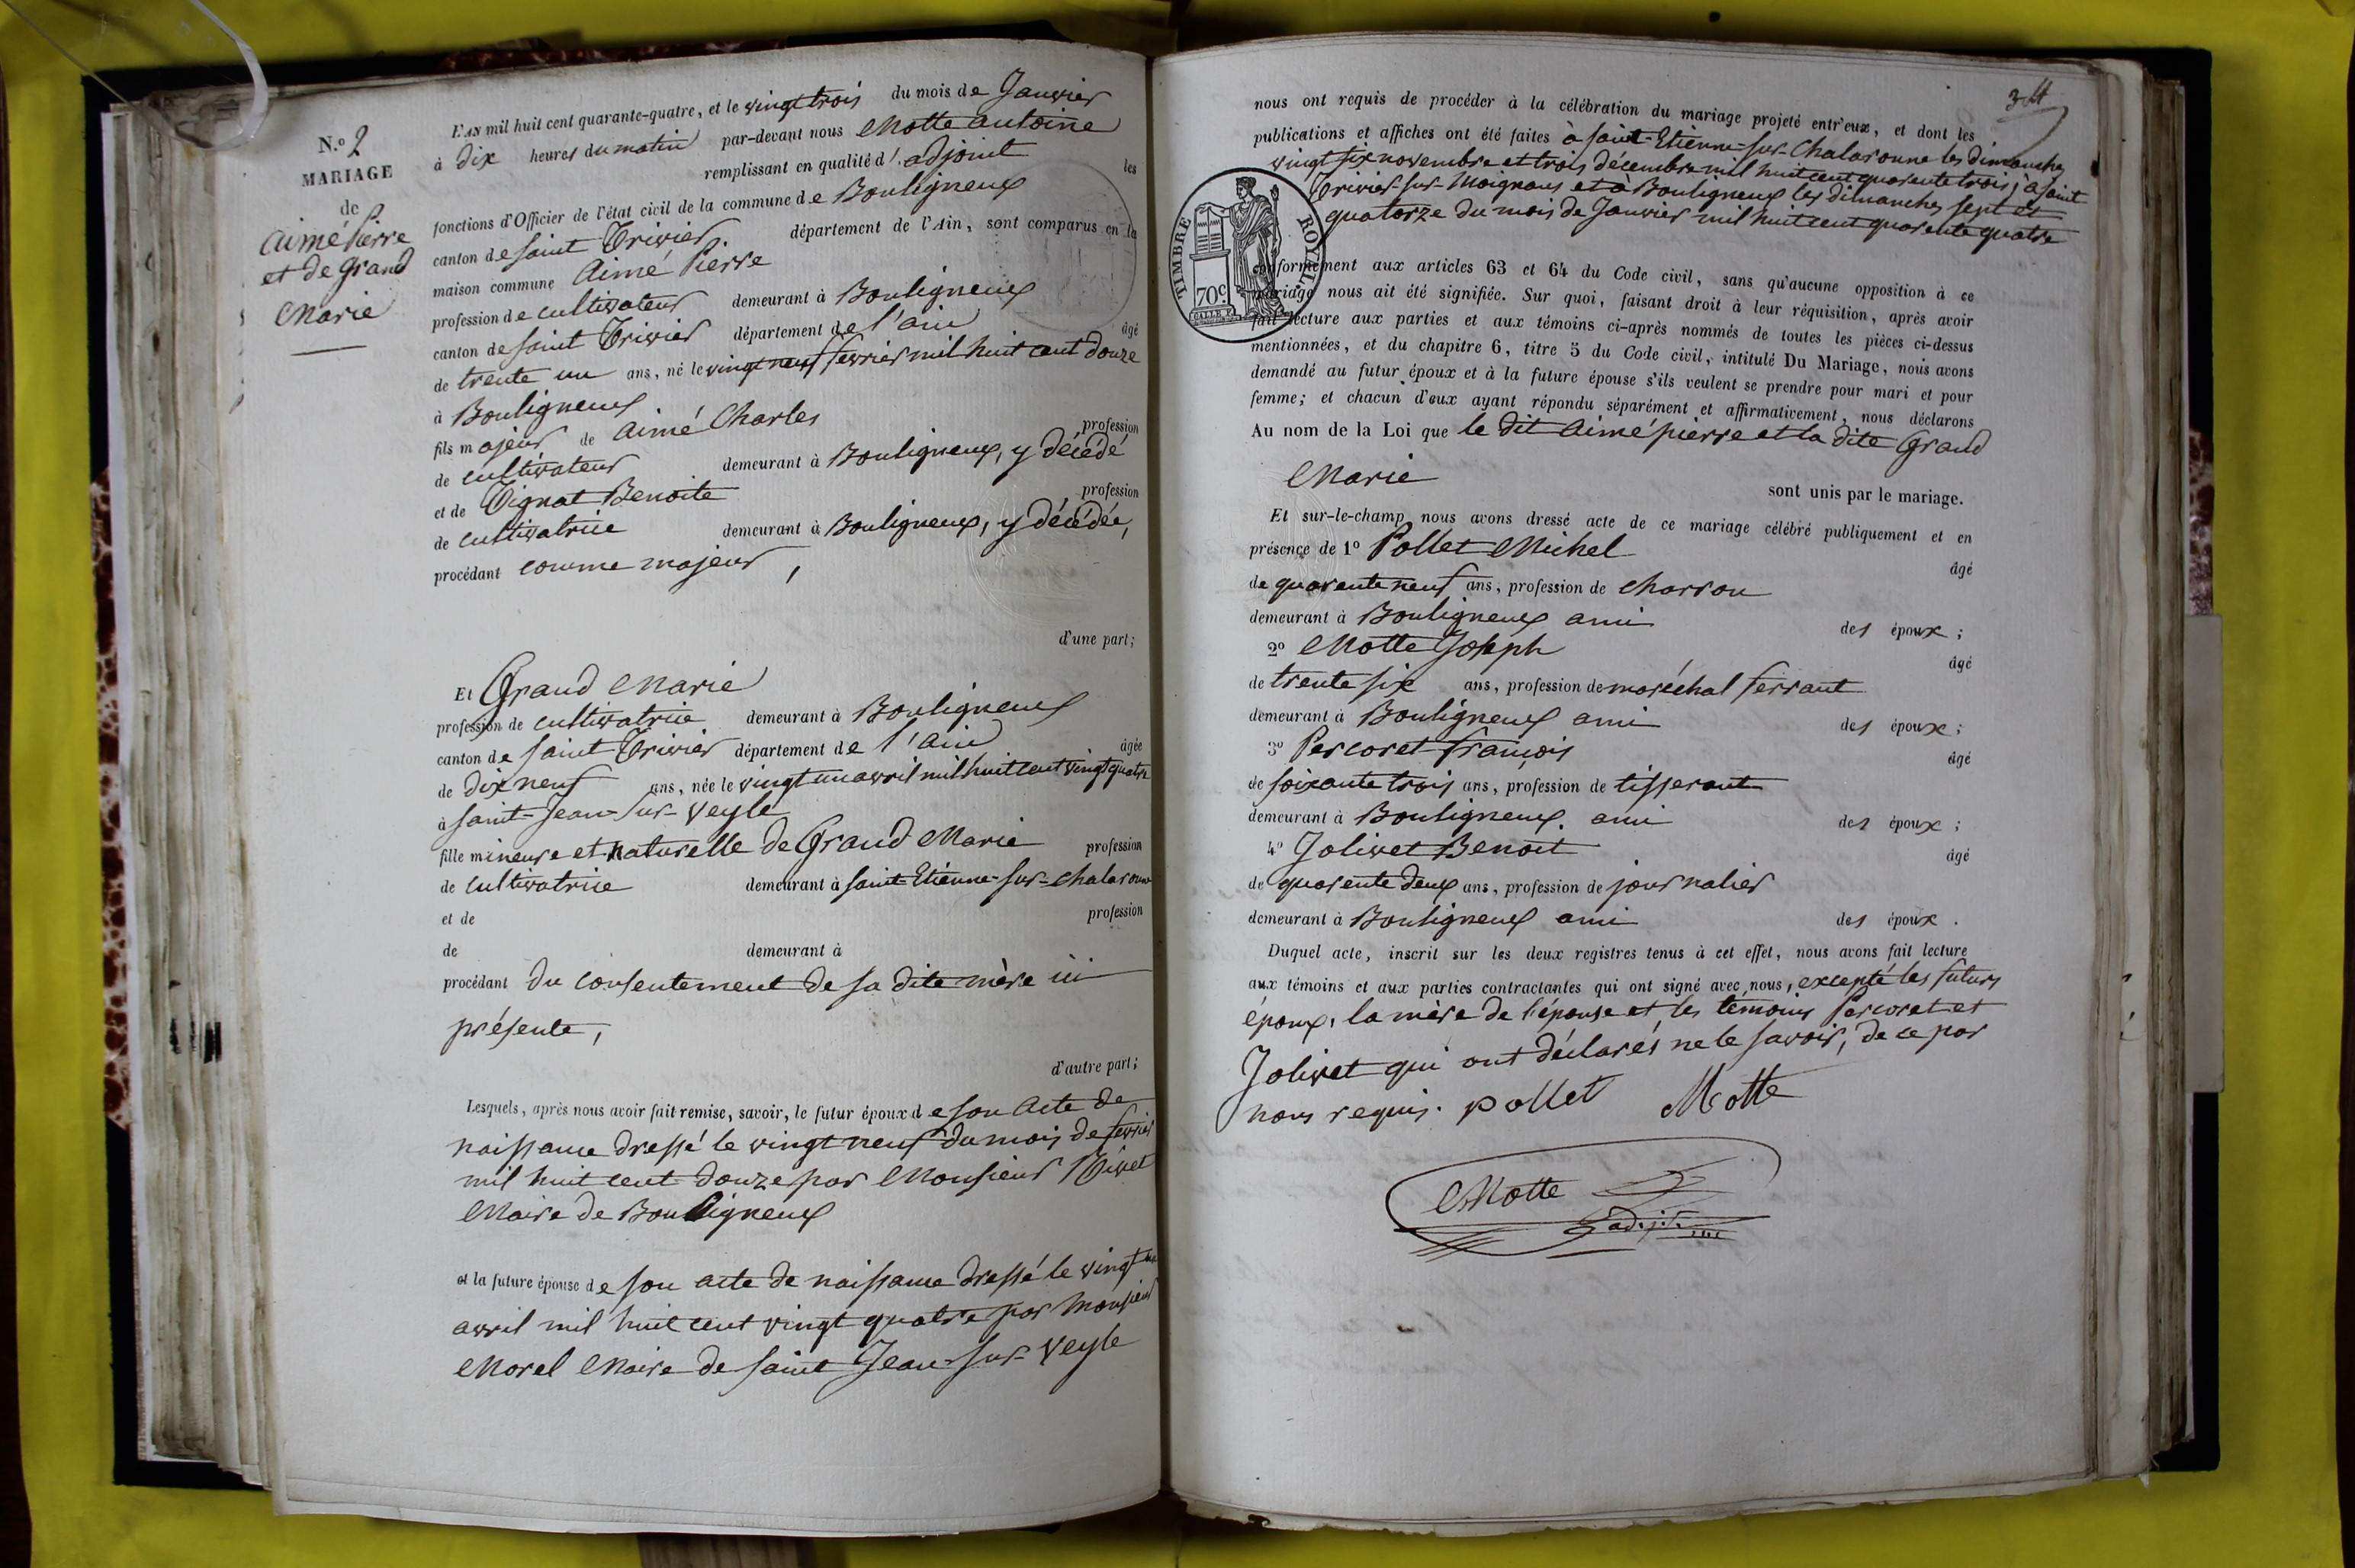 N.o 2
MARIAGE
de
Aimé Pierre
et de Grand
Marie
L'AN mil huit cent quarante-quatre, et le vingt trois du mois de Janvier
à dix heures du matin par-devant nous Motte antoine
remplissant en qualité d'adjoint les
fonctions d'Officier de l'état civil de la commune de Bouligneux
canton de saint Trivier département de l'Ain, sont comparus en la
maison commune Aimé Pierre
profession de cultivateur demeurant à Bouligneux
canton de saint Trivier département de l'ain âgé
de trente un ans, né le vingt neuf fevrier mil huit cent douze
à Bouligneux
fils majeur de Aimé Charles profession
de cultivateur demeurant à Bouligneux, y décédé
et de Vignat Benoite profession
de cultivatrice demeurant à Bouligneux, y décédée,
procédant comme majeur,
d'une part;
Et Grand Marie
profession de cultivatrice demeurant à Bouligneux
canton de saint Trivier département de l'ain âgée
de dix neuf ans, née le vingt un avril mil huit cent vingt quatre
à saint-Jean-sur-Veyle
fille mineure et naturelle de Grand Marie profession
de cultivatrice demeurant à saint-Etienne-sur-chalaronne
et de profession
de demeurant à
procédant du consentement de sa dite mère ici
présente,
d'autre part;
Lesquels, après nous avoir fait remise, savoir, le futur époux de son acte de
naissance dressé le vingt neuf du mois de fevrier
mil huit cent douze par Monsieur
Maire de Bouligneux
et la future épouse de son acte de naissance dressé le vingt un
avril mil huit cent vingt quatre par Monsieur
Morel Maire de saint Jean-sur-Veyle
34
nous ont requis de procéder à la célébration du mariage projeté entr'eux, et dont les
publications et affiches ont été faites à saint-Etienne-sur-Chalaronne les dimanches
vingt six novembre et trois décembre mil huit cent quarente trois; à saint
Trivier-sur-Moignans et à Bouligneux les dimanches sept et
quatorze du mois de Janvier mil huit cent quarente quatre
TIMBRE ROYAL
70c
conformément aux articles 63 et 64 du Code civil, sans qu'aucune opposition à ce
mariage nous ait été signifiée. Sur quoi, faisant droit à leur réquisition, après avoir
fait lecture aux parties et aux témoins ci-après nommés de toutes les pièces ci-dessus
mentionnées, et du chapitre 6, titre 5 du Code civil, intitulé Du Mariage, nous avons
demandé au futur époux et à la future épouse s'ils veulent se prendre pour mari et pour
femme; et chacun d'eux ayant répondu séparément et affirmativement, nous déclarons
Au nom de la Loi que le dit Aimé pierre et la dite Grand
Marie
sont unis par le mariage.
Et sur-le-champ nous avons dressé acte de ce mariage célébré publiquement et en
présence de 1o Pollet Michel âgé
de quarente neuf ans, profession de charron
demeurant à Bouligneux ami des époux;
2o Motte Joseph âgé
de trente six ans, profession de maréchal ferrant
demeurant à Bouligneux ami des époux;
3o Percoret françois âgé
de soixante trois ans, profession de tisserant
demeurant à Bouligneux ami des époux;
4o Jolivet Benoit âgé
de quarente deux ans, profession de journalier
demeurant à Bouligneux ami des époux.
Duquel acte, inscrit sur les deux registres tenus à cet effet, nous avons fait lecture
aux témoins et aux parties contractantes qui ont signé avec nous, excepté les futurs
époux, la mère de l'épouse et les témoins Percoret et
Jolivet qui ont déclarés ne le savoir, de ce par
nous requis. pollet Motte
Motte
adjt